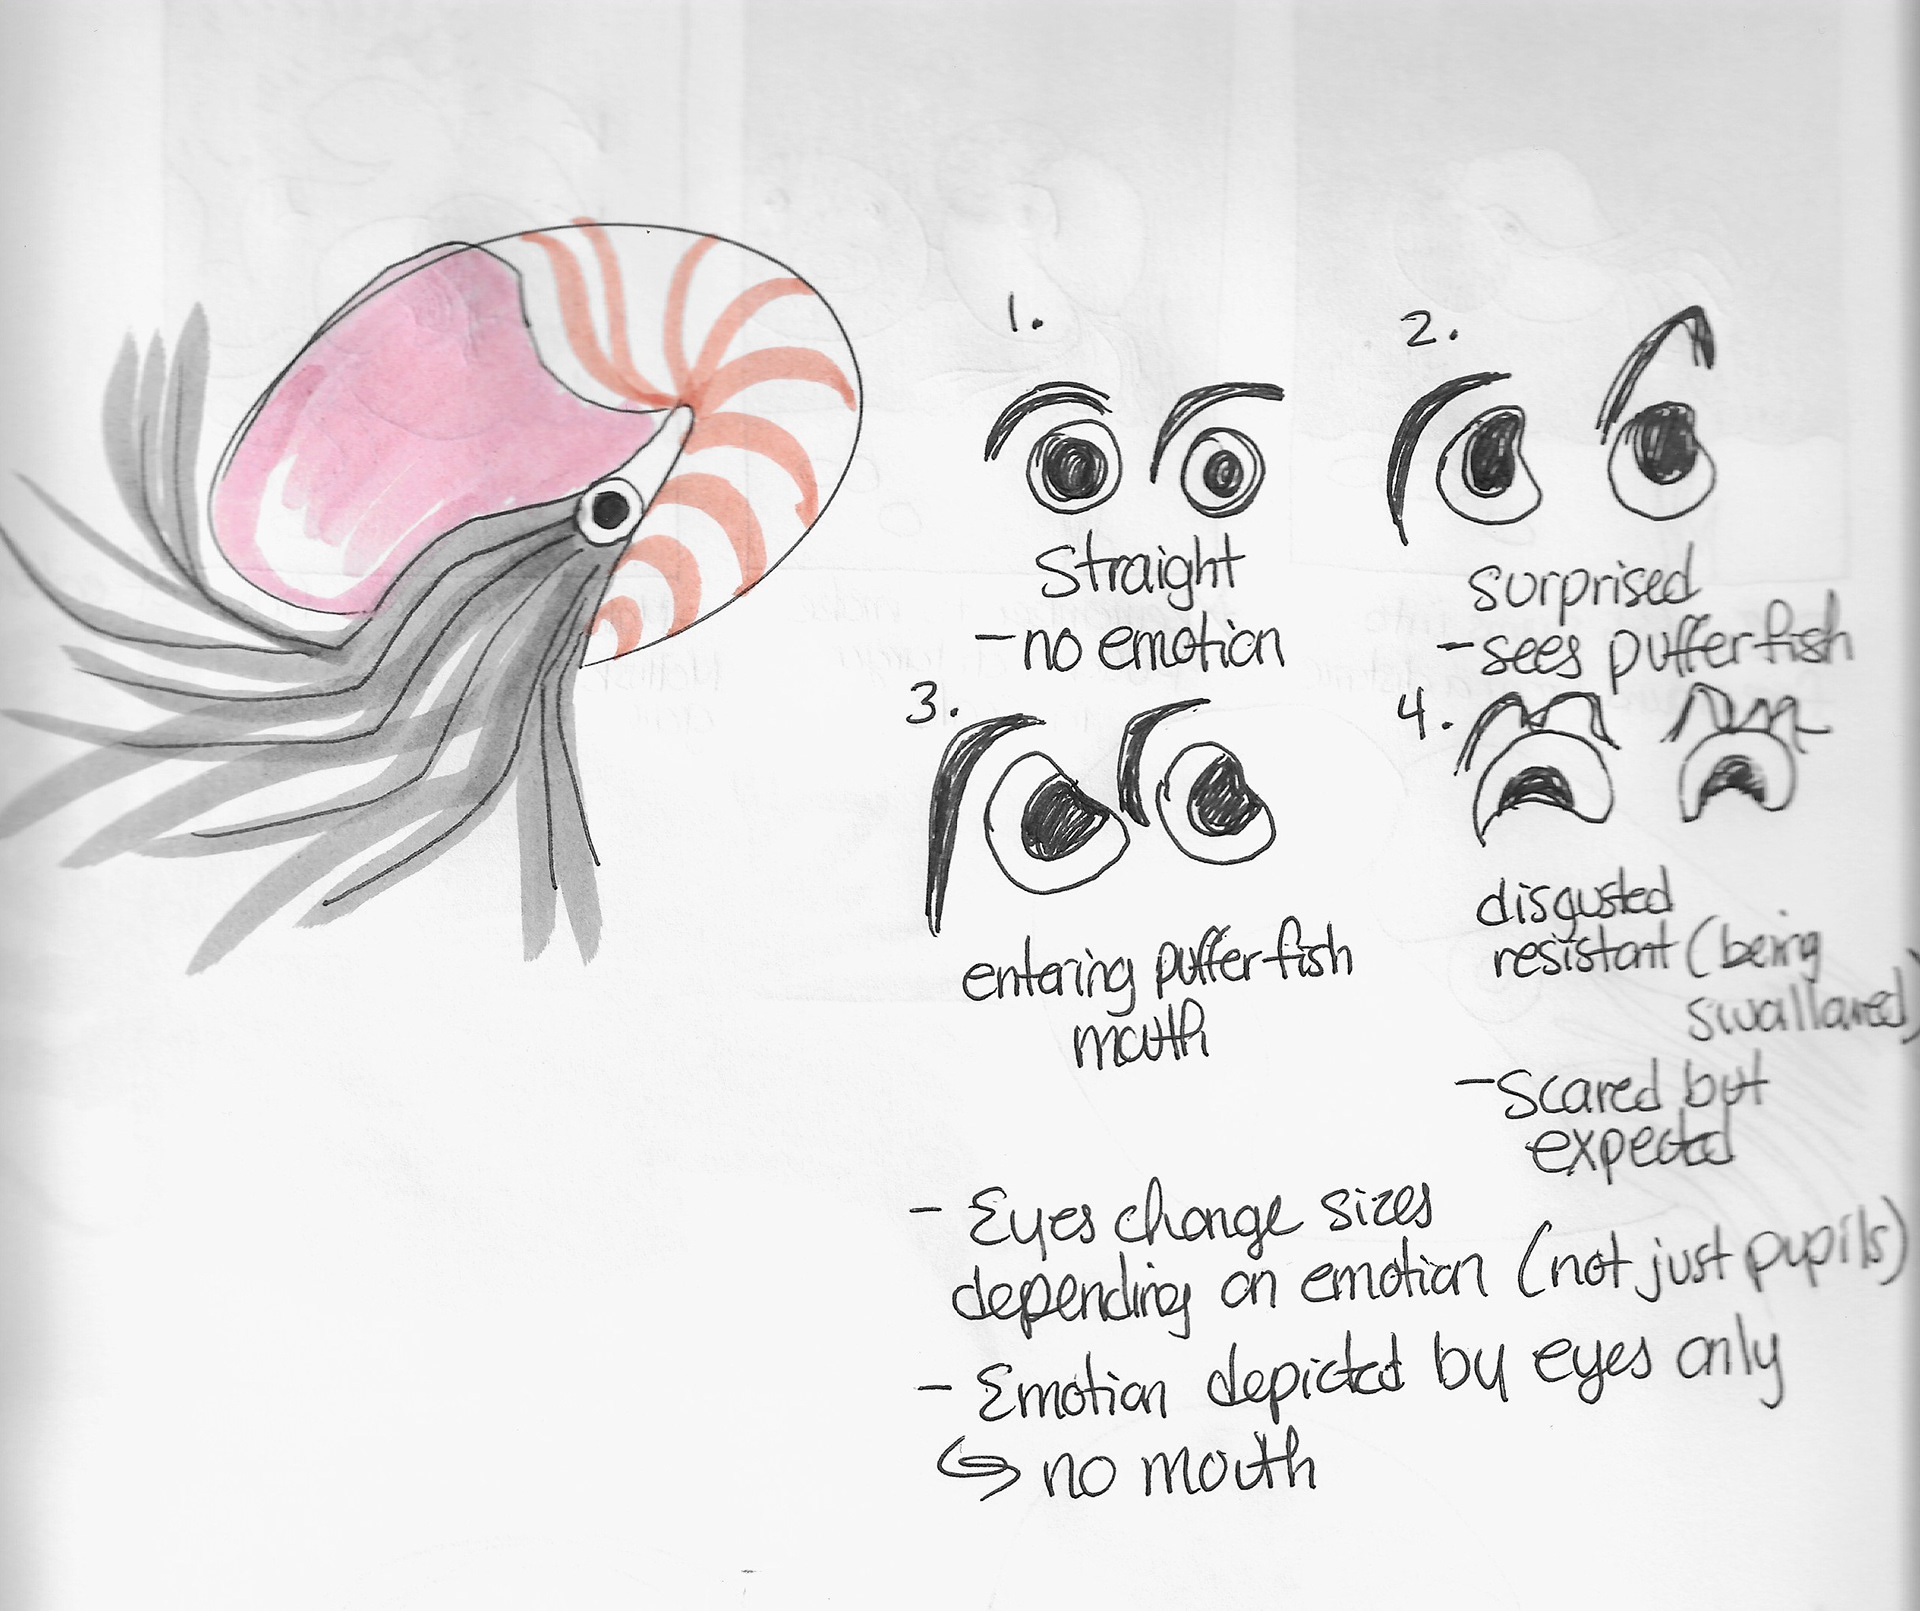 1.
Straight
- no emotion
2.
surprised
- sees puffer fish
3.
entering puffer fish
mouth
4.
disgusted
resistant (being
swallowed)
- Scared but
expected
- Eyes change sizes
depending on emotion (not just pupils)
- Emotion depicted by eyes only
↪ no mouth